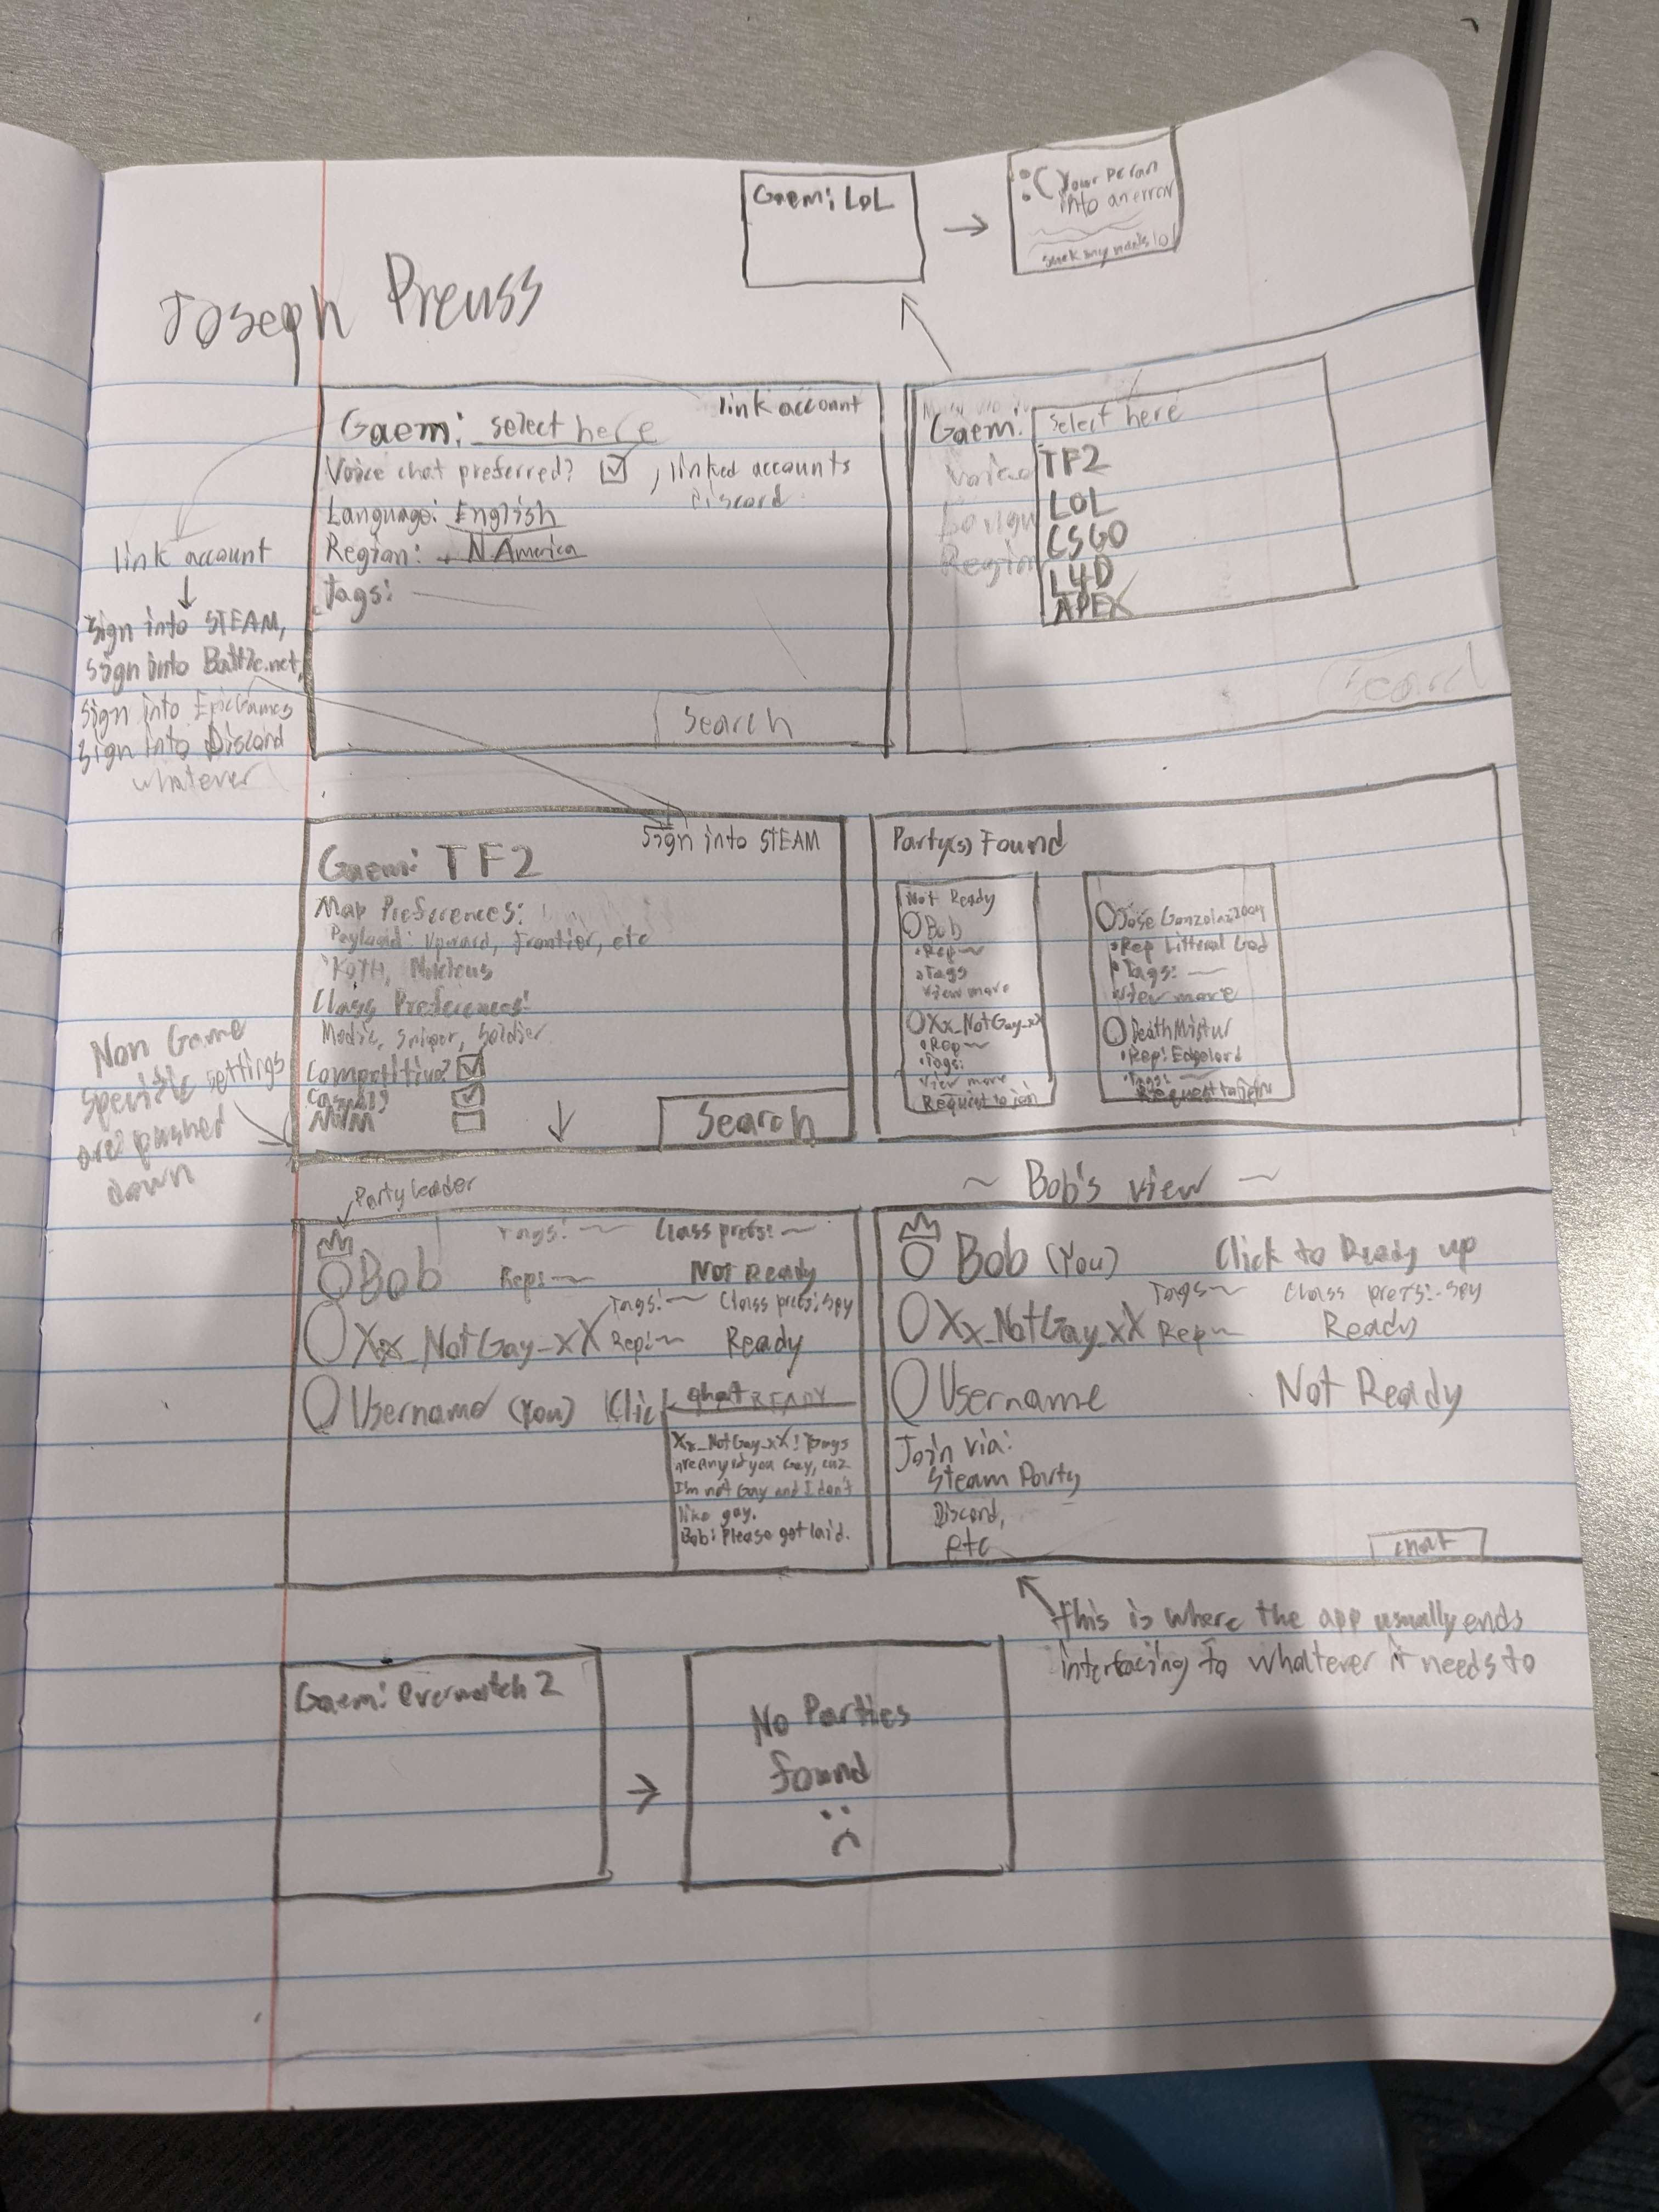 Joseph Preuss
Gaem: LoL
:( Your PC ran
into an error
Gaem: select here
link account
Voice chat preferred?
, linked accounts
Discord
Language: English
Region: N. America
Tags:
Search
Gaem:
Select here
TF2
LOL
CSGO
L4D
APEX
Voice
Region
Search
link account
Sign into STEAM,
Sign into Battle.net,
Sign into EpicGames
Sign into Discord
whatever
Sign into STEAM
Gaem: TF2
Map Preferences:
Payload: Upward, Frontier, etc
KOTH, Nucleus
Class Preferences:
Medic, Sniper, Soldier
Competitive?
Casual?
MVM
Search
Non Game
Specific settings
are pushed
down
Party(s) Found
Not Ready
Bob
•Rep~
•Tags
View more
Xx_NotGay_xX
•Rep~
•Tags:
View more
Request to join
•Rep Litteral God
•Tags: ~
View more
DeathMistur
•Rep: Edgelord
•Tags: ~
Request to join
Party leader
Bob
Tags: ~
Class prefs: ~
Reps ~
Not Ready
Xx_NotGay_xX
Tags: ~
Class prefs: spy
Rep: ~
Ready
Username (You)
Clic
chat
READY
Xx_NotGay_xX:
are any of you Gay, cuz
I'm not Gay and I don't
like gay.
Bob: Please get laid.
~ Bob's view ~
Bob (You)
Click to Ready up
Xx_NotGay_xX
Tags~
Class prefs: spy
Rep~
Ready
Username
Not Ready
Join via:
Steam Party
Discord,
etc
chat
This is where the app usually ends
interfacing to whatever it needs to
Gaem: Overwatch 2
No Parties
found
:(